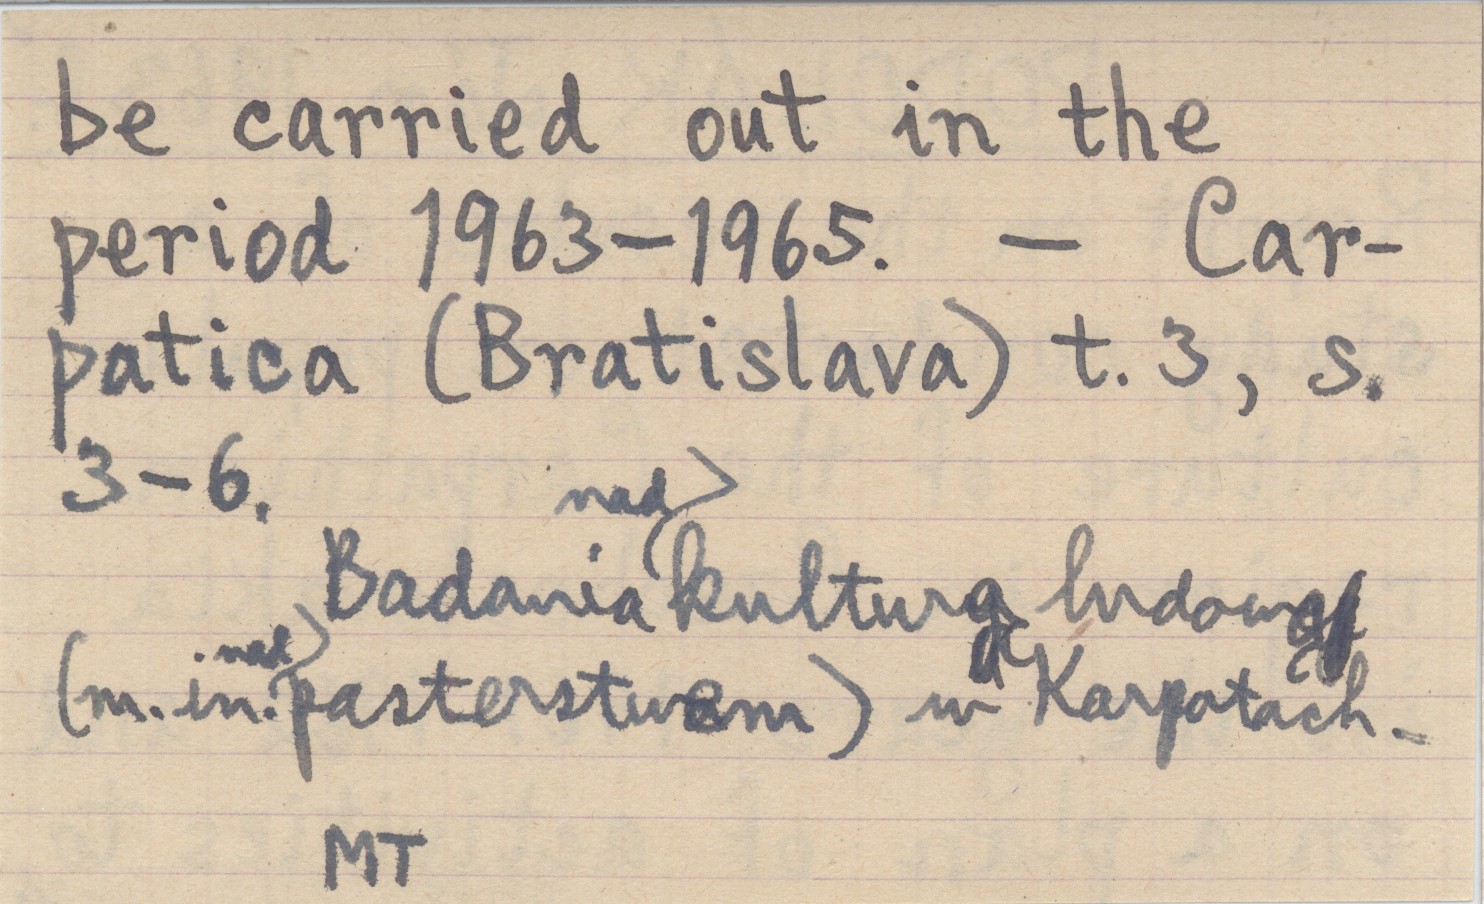 be carried out in the
period 1963-1965. – Car-
patica (Bratislava) t. 3, s.
3-6.
nad
Badania kulturą ludową
nad
(m. in. pasterstwem) w Karpatach.-
MT